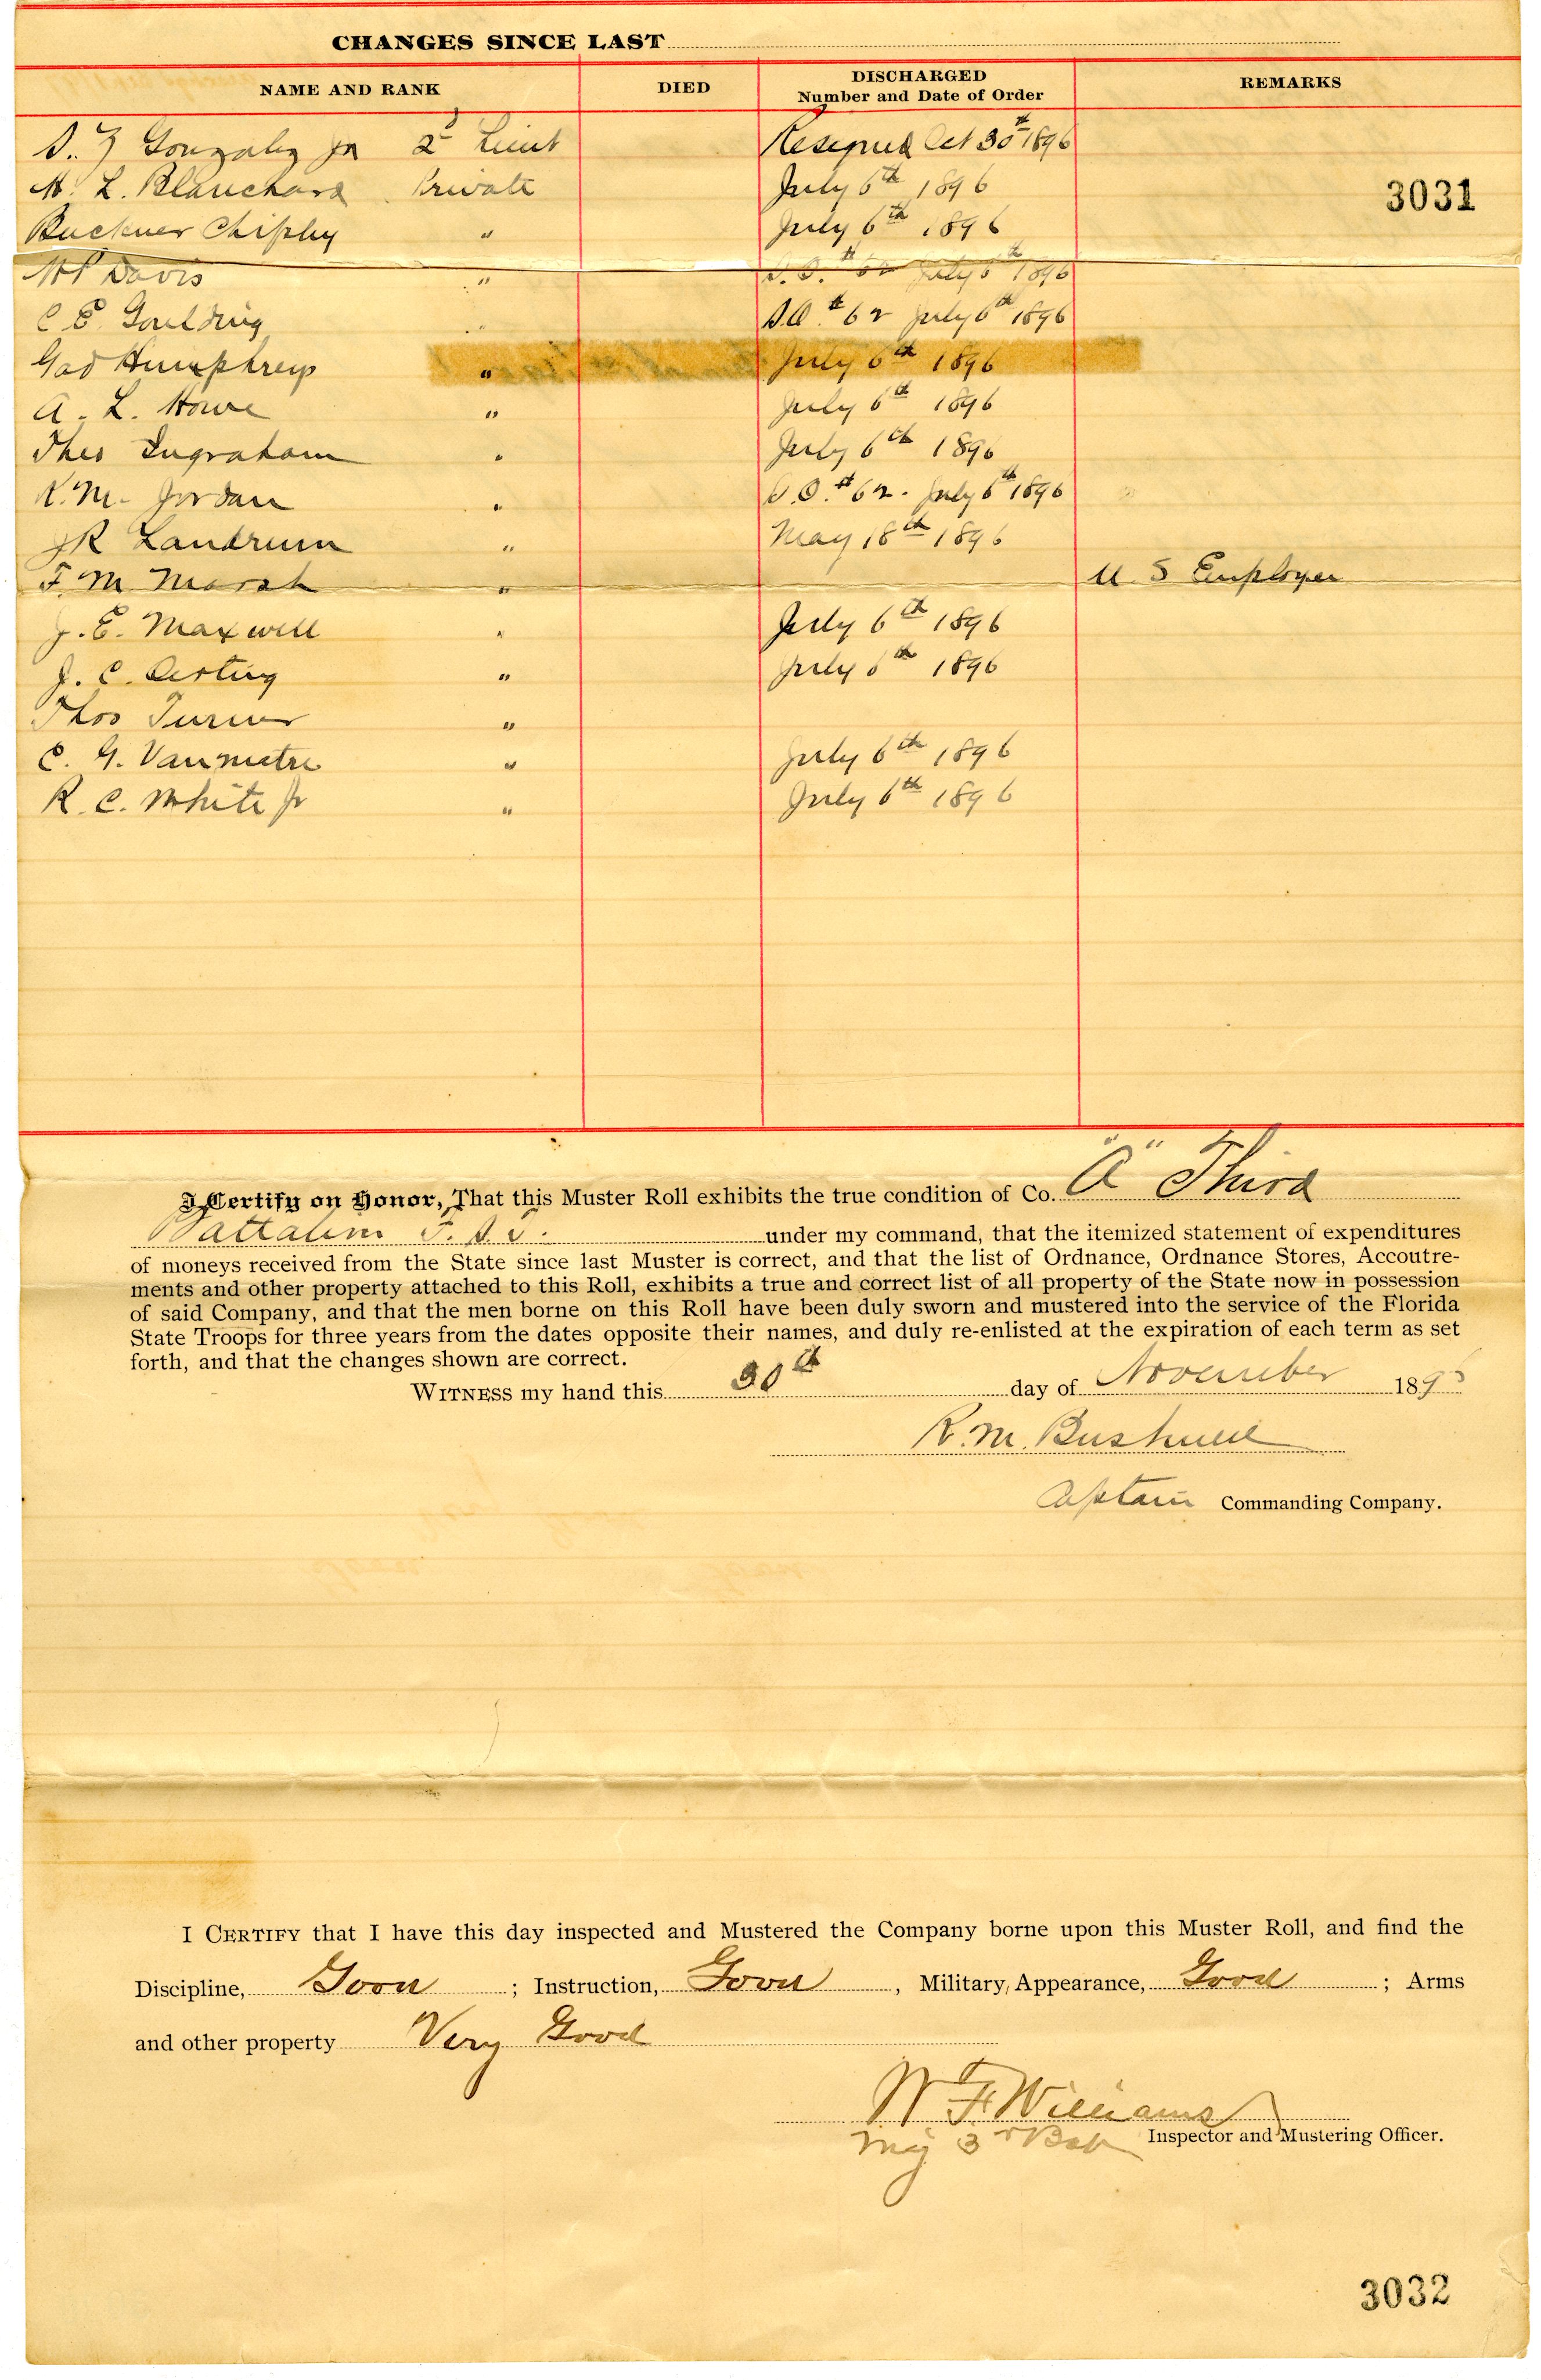 CHANGES SINCE LAST
NAME AND RANK DIED DISCHARGED Number and Date of Order REMARKS
S. Z Gonzalez Jr 2d Lieut Resigned Oct 30th 1896
W. L. Blanchard Private July 6th 1896
3031
Buckner Chipley " July 6th 1896
Davis " S.O. # 62 July 6th 1896
C E. Goulding " S.O. # 62 July 6th 1896
Gad Humphreys " July 6th 1896
A. L. Howe " July 6th 1896
Theo Ingraham " July 6th 1896
K. M. Jordan " S.O. # 62. July 6th 1896
JR Landrum " May 18th 1896
F. M Marsh " U. S Employee
J. E. Maxwell " July 6th 1896
J. C. Oerting " July 6th 1896
Thos Turner "
C. G. Vanmetre " July 6th 1896
R. C. White Jr " July 6th 1896
I Certify on Honor, That this Muster Roll exhibits the true condition of Co. "A" Third
Battalion F. S. T. under my command, that the itemized statement of expenditures
of moneys received from the State since last Muster is correct, and that the list of Ordnance, Ordnance Stores, Accoutre-
ments and other property attached to this Roll, exhibits a true and correct list of all property of the State now in possession
of said Company, and that the men borne on this Roll have been duly sworn and mustered into the service of the Florida
State Troops for three years from the dates opposite their names, and duly re-enlisted at the expiration of each term as set
forth, and that the changes shown are correct.
WITNESS my hand this 30th day of November 1896
R. M. Bushnell
Captain Commanding Company.
I CERTIFY that I have this day inspected and Mustered the Company borne upon this Muster Roll, and find the
Discipline, Good ; Instruction, Good , Military Appearance, Good ; Arms
and other property Very Good
W F Williams
Maj 3r Bat Inspector and Mustering Officer.
3032